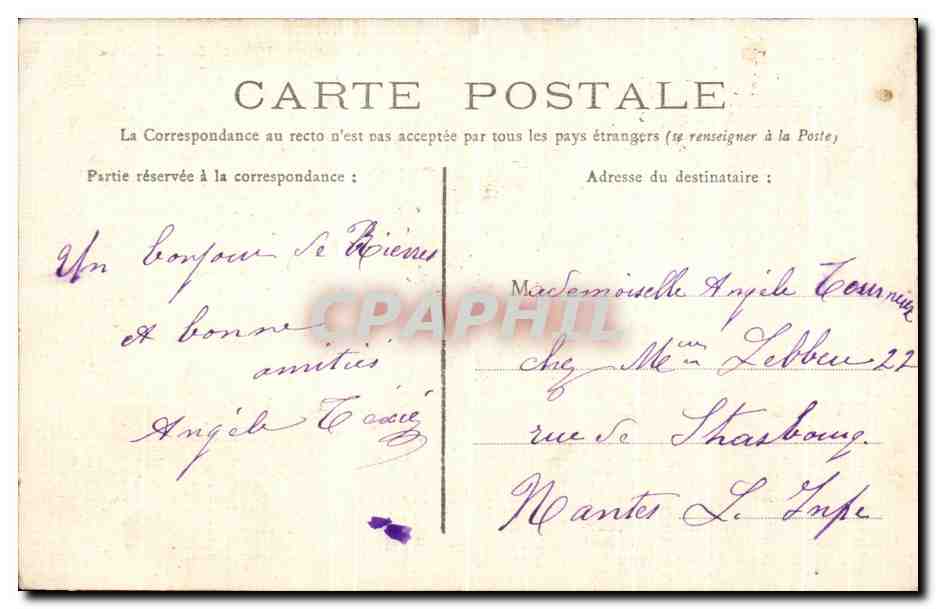 CARTE POSTALE
La Correspondance au recto n'est pas acceptée par tous les pays étrangers (se renseigner à la Poste)
Partie réservée à la correspondance :
Un bonjour de Rièvres
et bonne
amitiés
Angèle
Adresse du destinataire :
Mademoiselle Angèle Tourneux
chez
22
rue de Strasbourg.
Nantes L. Infe
CPAPHIL